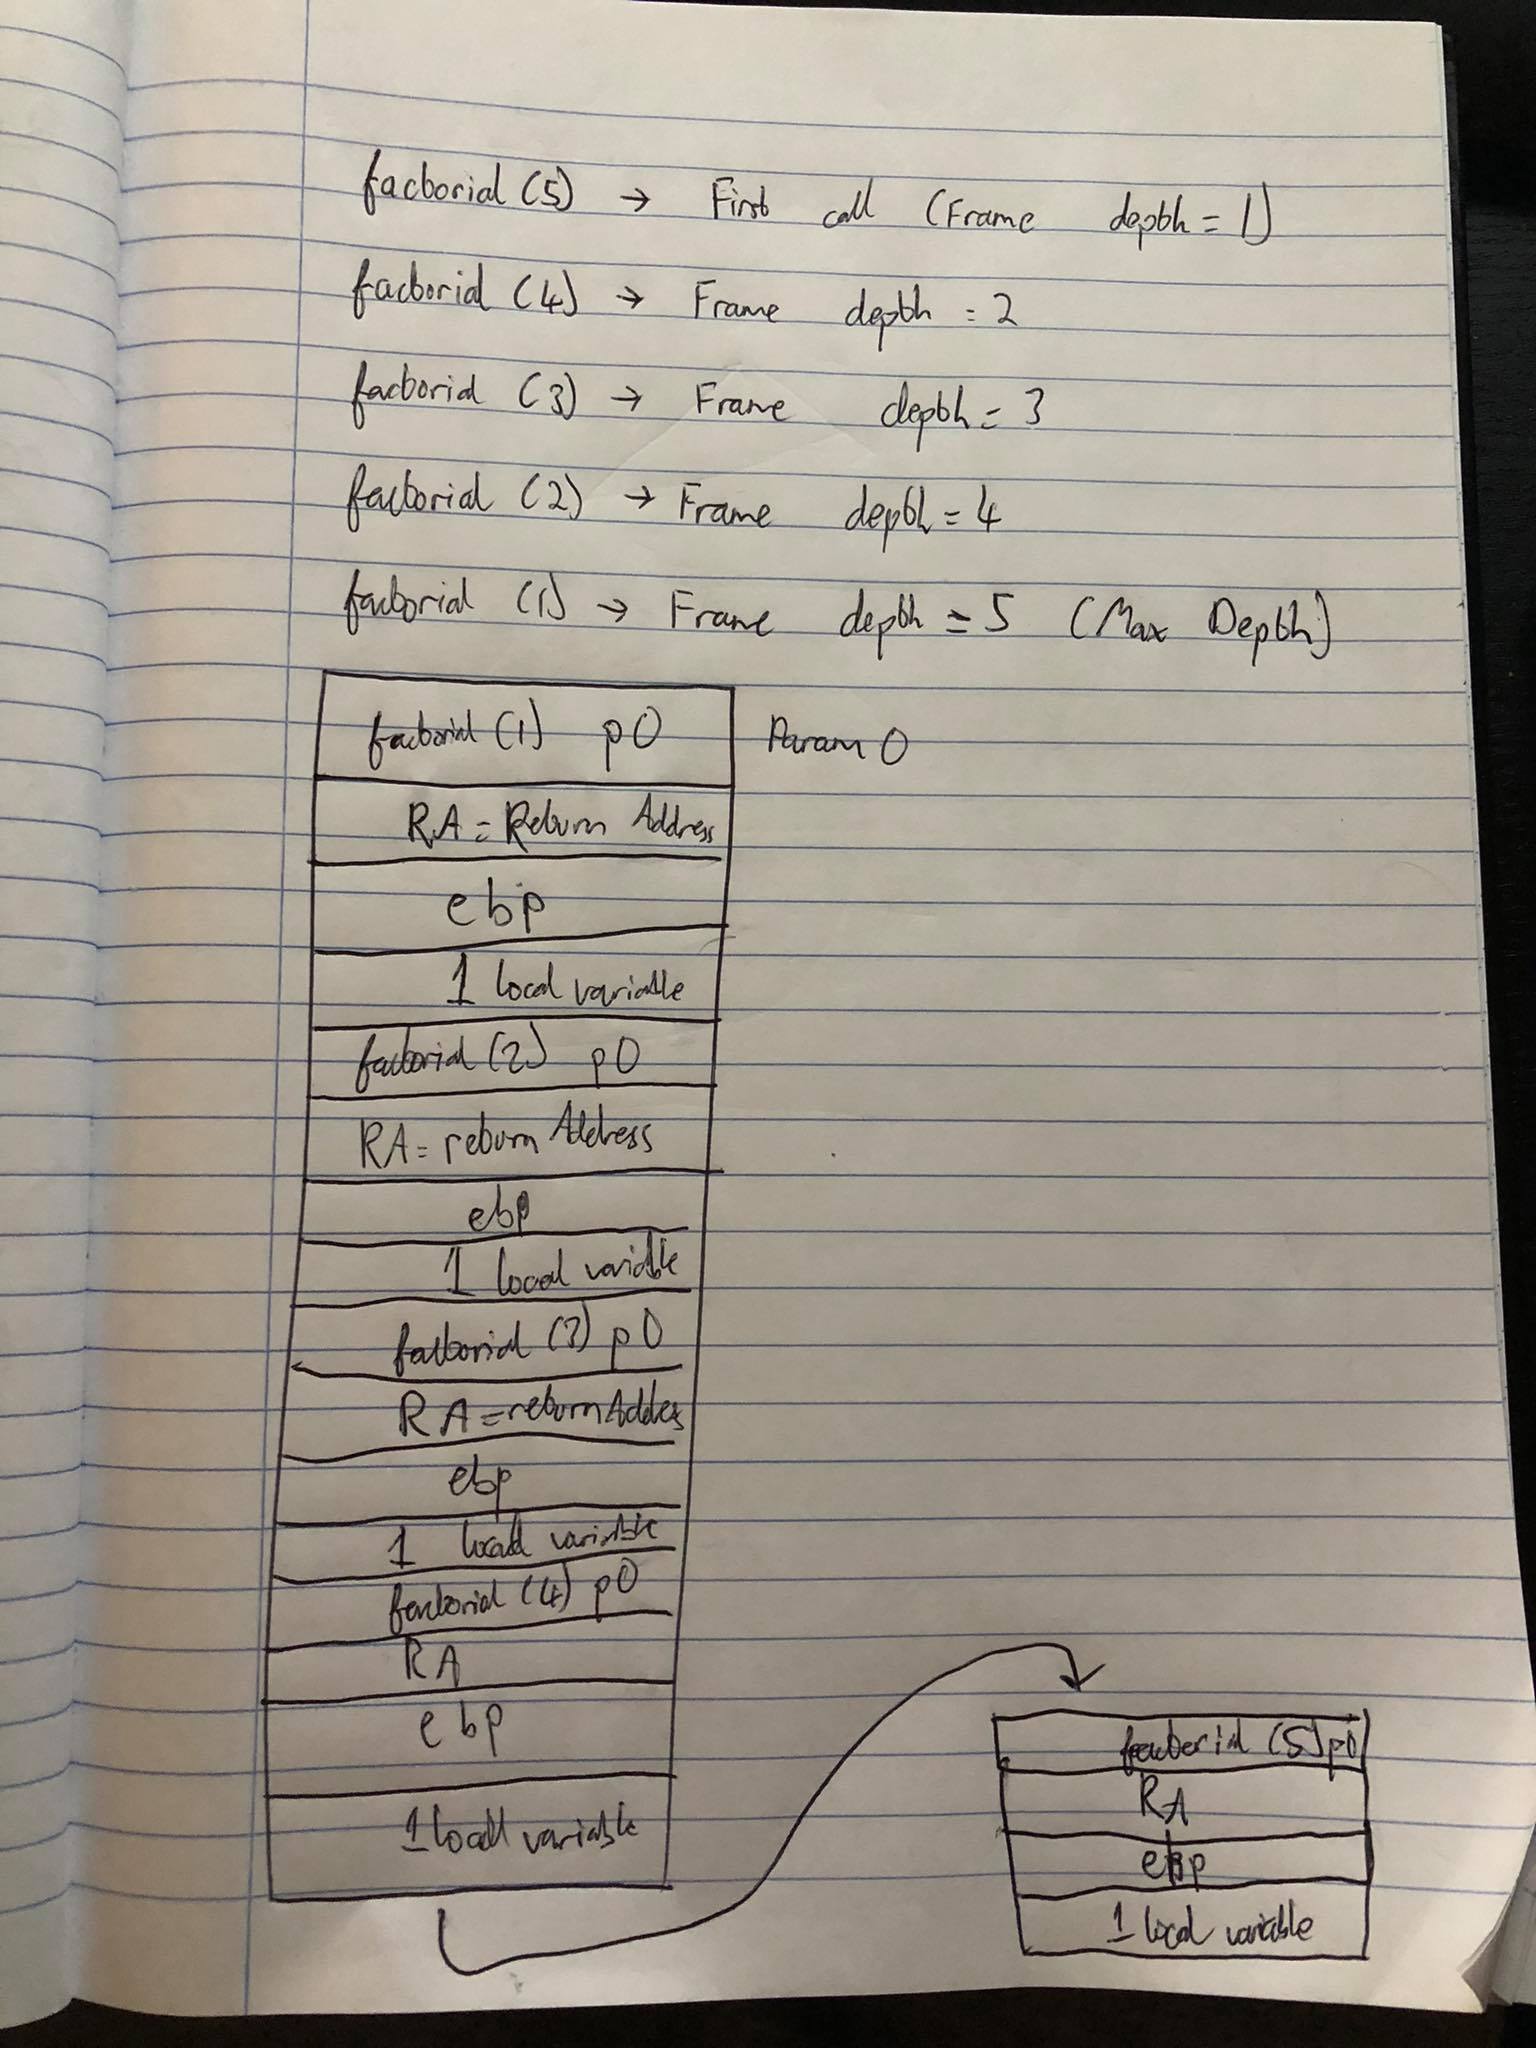 factorial (5) → First call (Frame depth = 1)
factorial (4) → Frame depth = 2
factorial (3) → Frame depth = 3
factorial (2) → Frame depth = 4
factorial (1) → Frame depth = 5 (Max Depth)
factorial (1) p0 Param 0
RA = Return Address
ebp
1 local variable
factorial (2) p0
RA = return Address
ebp
1 local variable
factorial (3) p0
RA = return Addres
ebp
1 local variable
factorial (4) p0
RA
ebp
1 local variable
factorial (5) p0
RA
ebp
1 local variable